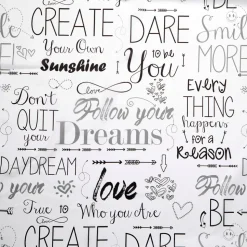 CREATE
Your Own
Sunshine
DARE
to be
You
Smile
MORE
love
Don't
QUIT
your
Follow your
Dreams
Every
THING
happens
for a
Reason
DAYDREAM
your
love
Follow
True to
Who you Are
BE
CREATE
DARE